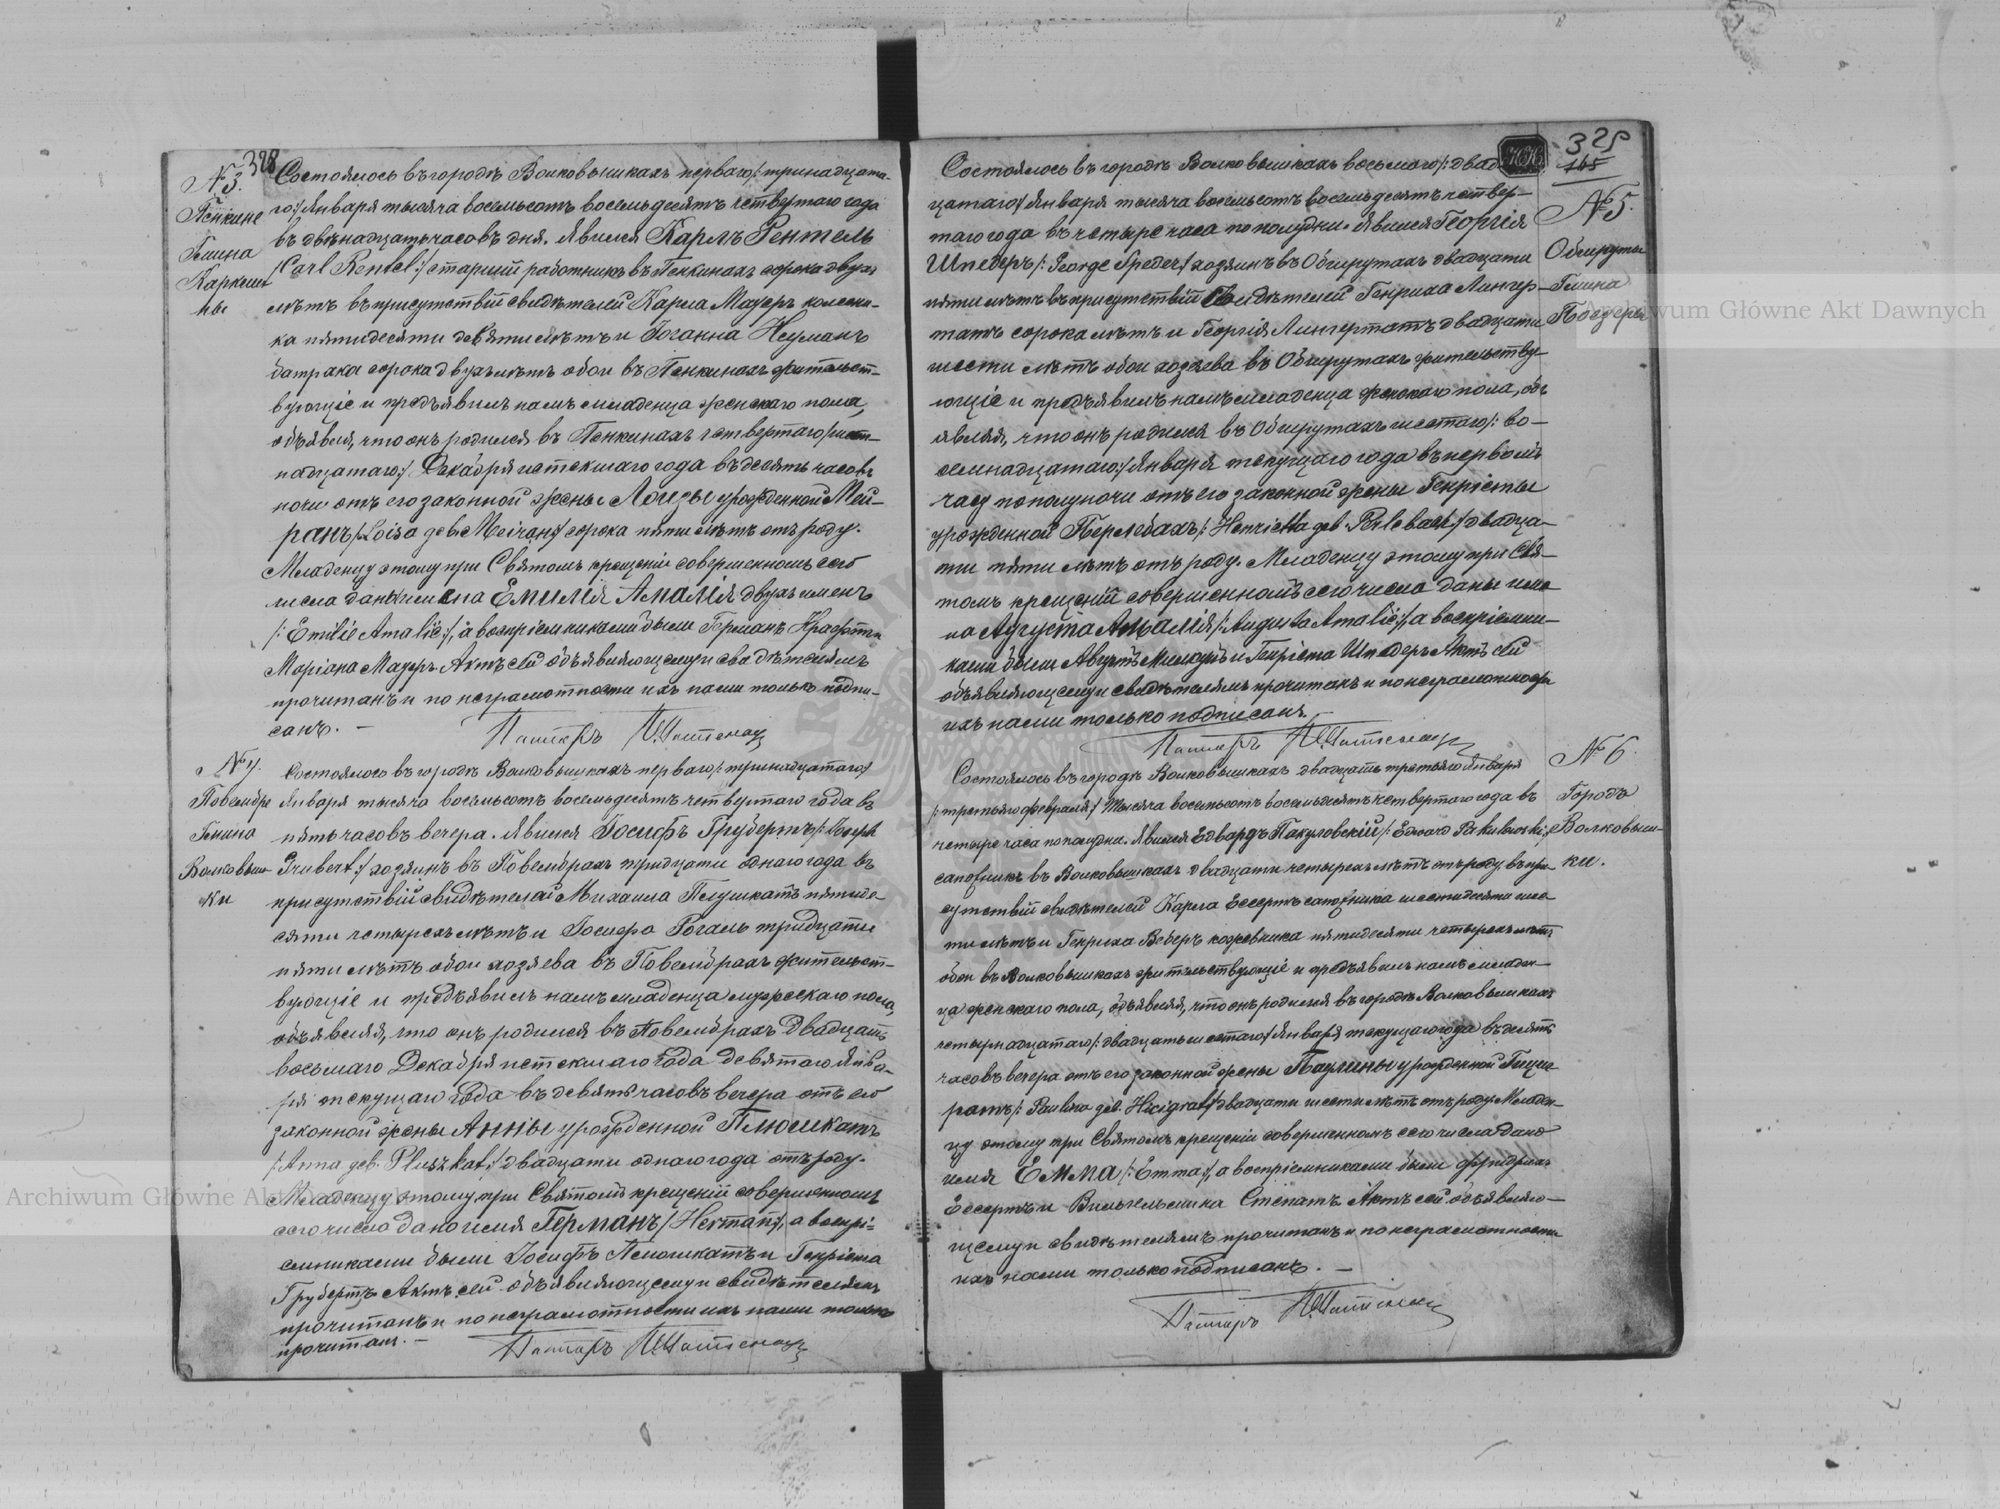 № 3.
328
Пенкине
Гмина
Каркли-
ны
Состоялось въ городѣ Волковышкахъ перваго /: тринадцата-
го :/ Января тысяча восемьсотъ восемьдесятъ четвертаго года
въ двѣнадцать часовъ дня. Явился Карлъ Рентель
/: Carl Rentel :/ старшій работникъ въ Пенкинахъ сорока двухъ
лѣтъ въ присутствіи свидѣтелей Карла Мазуръ колесни-
ка пятидесяти девяти лѣтъ и Іоганна Неуманъ
батрака сорока двухъ лѣтъ обои въ Пенкинахъ жительст-
вующіе и предъявилъ намъ младенца женскаго пола,
объявляя, что онъ родился въ Пенкинахъ четвертаго /: шест-
надцатаго :/ Декабря истекшаго года въ десять часовъ
ночи отъ его законной жены Лоизы урожденной Мей-
ранъ /: Loisa geb. Meiran :/ сорока пяти лѣтъ отъ роду.
Младенцу этому при Святомъ крещеніи совершенномъ сего
числа даны имена Емилія Амалія двухъ именъ
/: Emilie Amalie :/, а воспріемниками были Германъ Крафтъ и
Маріана Мазуръ Актъ сей объявляющему и свидѣтелямъ
прочитанъ и по неграмотности ихъ нами только подпи-
санъ. —
Пасторъ
№ 4.
Повембре
Гмина
Волковыш-
ки
Состоялось въ городѣ Волковышкахъ перваго /: тринадцатаго :/
Января тысяча восемьсотъ восемьдесятъ четвертаго года въ
пять часовъ вечера. Явился Іосифъ Грубертъ /: Joseph
Grubert :/ хозяинъ въ Повембрахъ тридцати однаго года въ
присутствіи свидѣтелей Михаила Плушкатъ пятиде-
сяти четырехъ лѣтъ и Іосифа Рогаль тридцати
пяти лѣтъ обои хозяева въ Повембрахъ жительст-
вующіе и предъявилъ намъ младенца мужескаго пола,
объявляя, что онъ родился въ Повембрахъ двадцать
восьмаго Декабря истекшаго года девятаго Янва-
ря текущаго года въ девять часовъ вечера отъ его
законной жены Анны урожденной Плюшкатъ
/: Anna geb. Pluszkat :/ двадцати однаго года отъ роду.
Младенцу этому при Святомъ крещеніи совершенномъ
сего числа дано имя Германъ /: Herman :/, а воспрі-
емниками были Іосифъ Плюшкатъ и Генріета
Грубертъ Актъ сей объявляющему и свидѣтелямъ
прочитанъ и по неграмотности ихъ нами только
прочитан. —
Пасторъ
325
145
№ 5.
Обшруты
Гмина
Поезеры
Состоялось въ городѣ Волковышкахъ восьмаго /: двад-
цатаго :/ Января тысяча восемьсотъ восемьдесятъ четвер-
таго года въ четыре часа по полудни. Явился Георгія
Шпедеръ /: George Speder :/ хозяинъ въ Обшрутахъ двадцати
пяти лѣтъ въ присутствіи свидѣтелей Генриха Лингер-
татъ сорока лѣтъ и Георгія Лингертатъ двадцати
шести лѣтъ обои хозяева въ Обшрутахъ жительству-
ющіе и предъявилъ намъ младенца женскаго пола, объ
являя, что онъ родился въ Обшрутахъ шестаго /: во-
семнадцатаго :/ Января текущаго года въ первомъ
часу по полуночи отъ его законной жены Генріеты
урожденной Перлебахъ /: Henrietta geb. Perlebach :/ двадца-
ти пяти лѣтъ отъ роду. Младенцу этому при Свя-
томъ крещеніи совершенномъ сего числа даны име
на Аугуста Амалія /: Augusta Amalie :/ а воспріемни-
ками были Августъ и Генріета Шпедеръ Актъ сей
объявляющему и свидѣтелямъ прочитанъ и по неграмотности
ихъ нами только подписанъ. —
Пасторъ
№ 6.
Городъ
Волковыш-
ки.
Состоялось въ городѣ Волковышкахъ двадцать третьяго Января
/: третьяго февраля :/ тысяча восемьсотъ восемьдесятъ четвертаго года въ
четыре часа по полудни. Явился Едвардъ Пакуловскій /: Edward Pakulowski :/
сапожникъ въ Волковышкахъ двадцати четырехъ лѣтъ отъ роду въ при-
сутствіи свидѣтелей Карла Ессертъ сапожника шестидесяти шес-
ти лѣтъ и Генриха Веберъ кожевника пятидесяти четырехъ лѣтъ
обои въ Волковышкахъ жительствующіе и предъявилъ намъ младен-
ца женскаго пола, объявляя, что онъ родился въ городѣ Волковышкахъ
четырнадцатаго /: двадцать шестаго :/ Января текущаго года въ десять
часовъ вечера отъ его законной жены Паулины урожденной Гицих-
ратъ /: Paulina geb. Hicigrat :/ двадцати шести лѣтъ отъ роду. Младен-
цу этому при Святомъ крещеніи совершенномъ сего числа дано
имя Емма /: Emma :/, а воспріемниками были Фридрихъ
Ессертъ и Вильгельмина Степатъ Актъ сей объявляю-
щему и свидѣтелямъ прочитанъ и по неграмотности
ихъ нами только подписанъ. —
Пасторъ
Archiwum Główne Akt Dawnych
Archiwum Główne Akt Dawnych